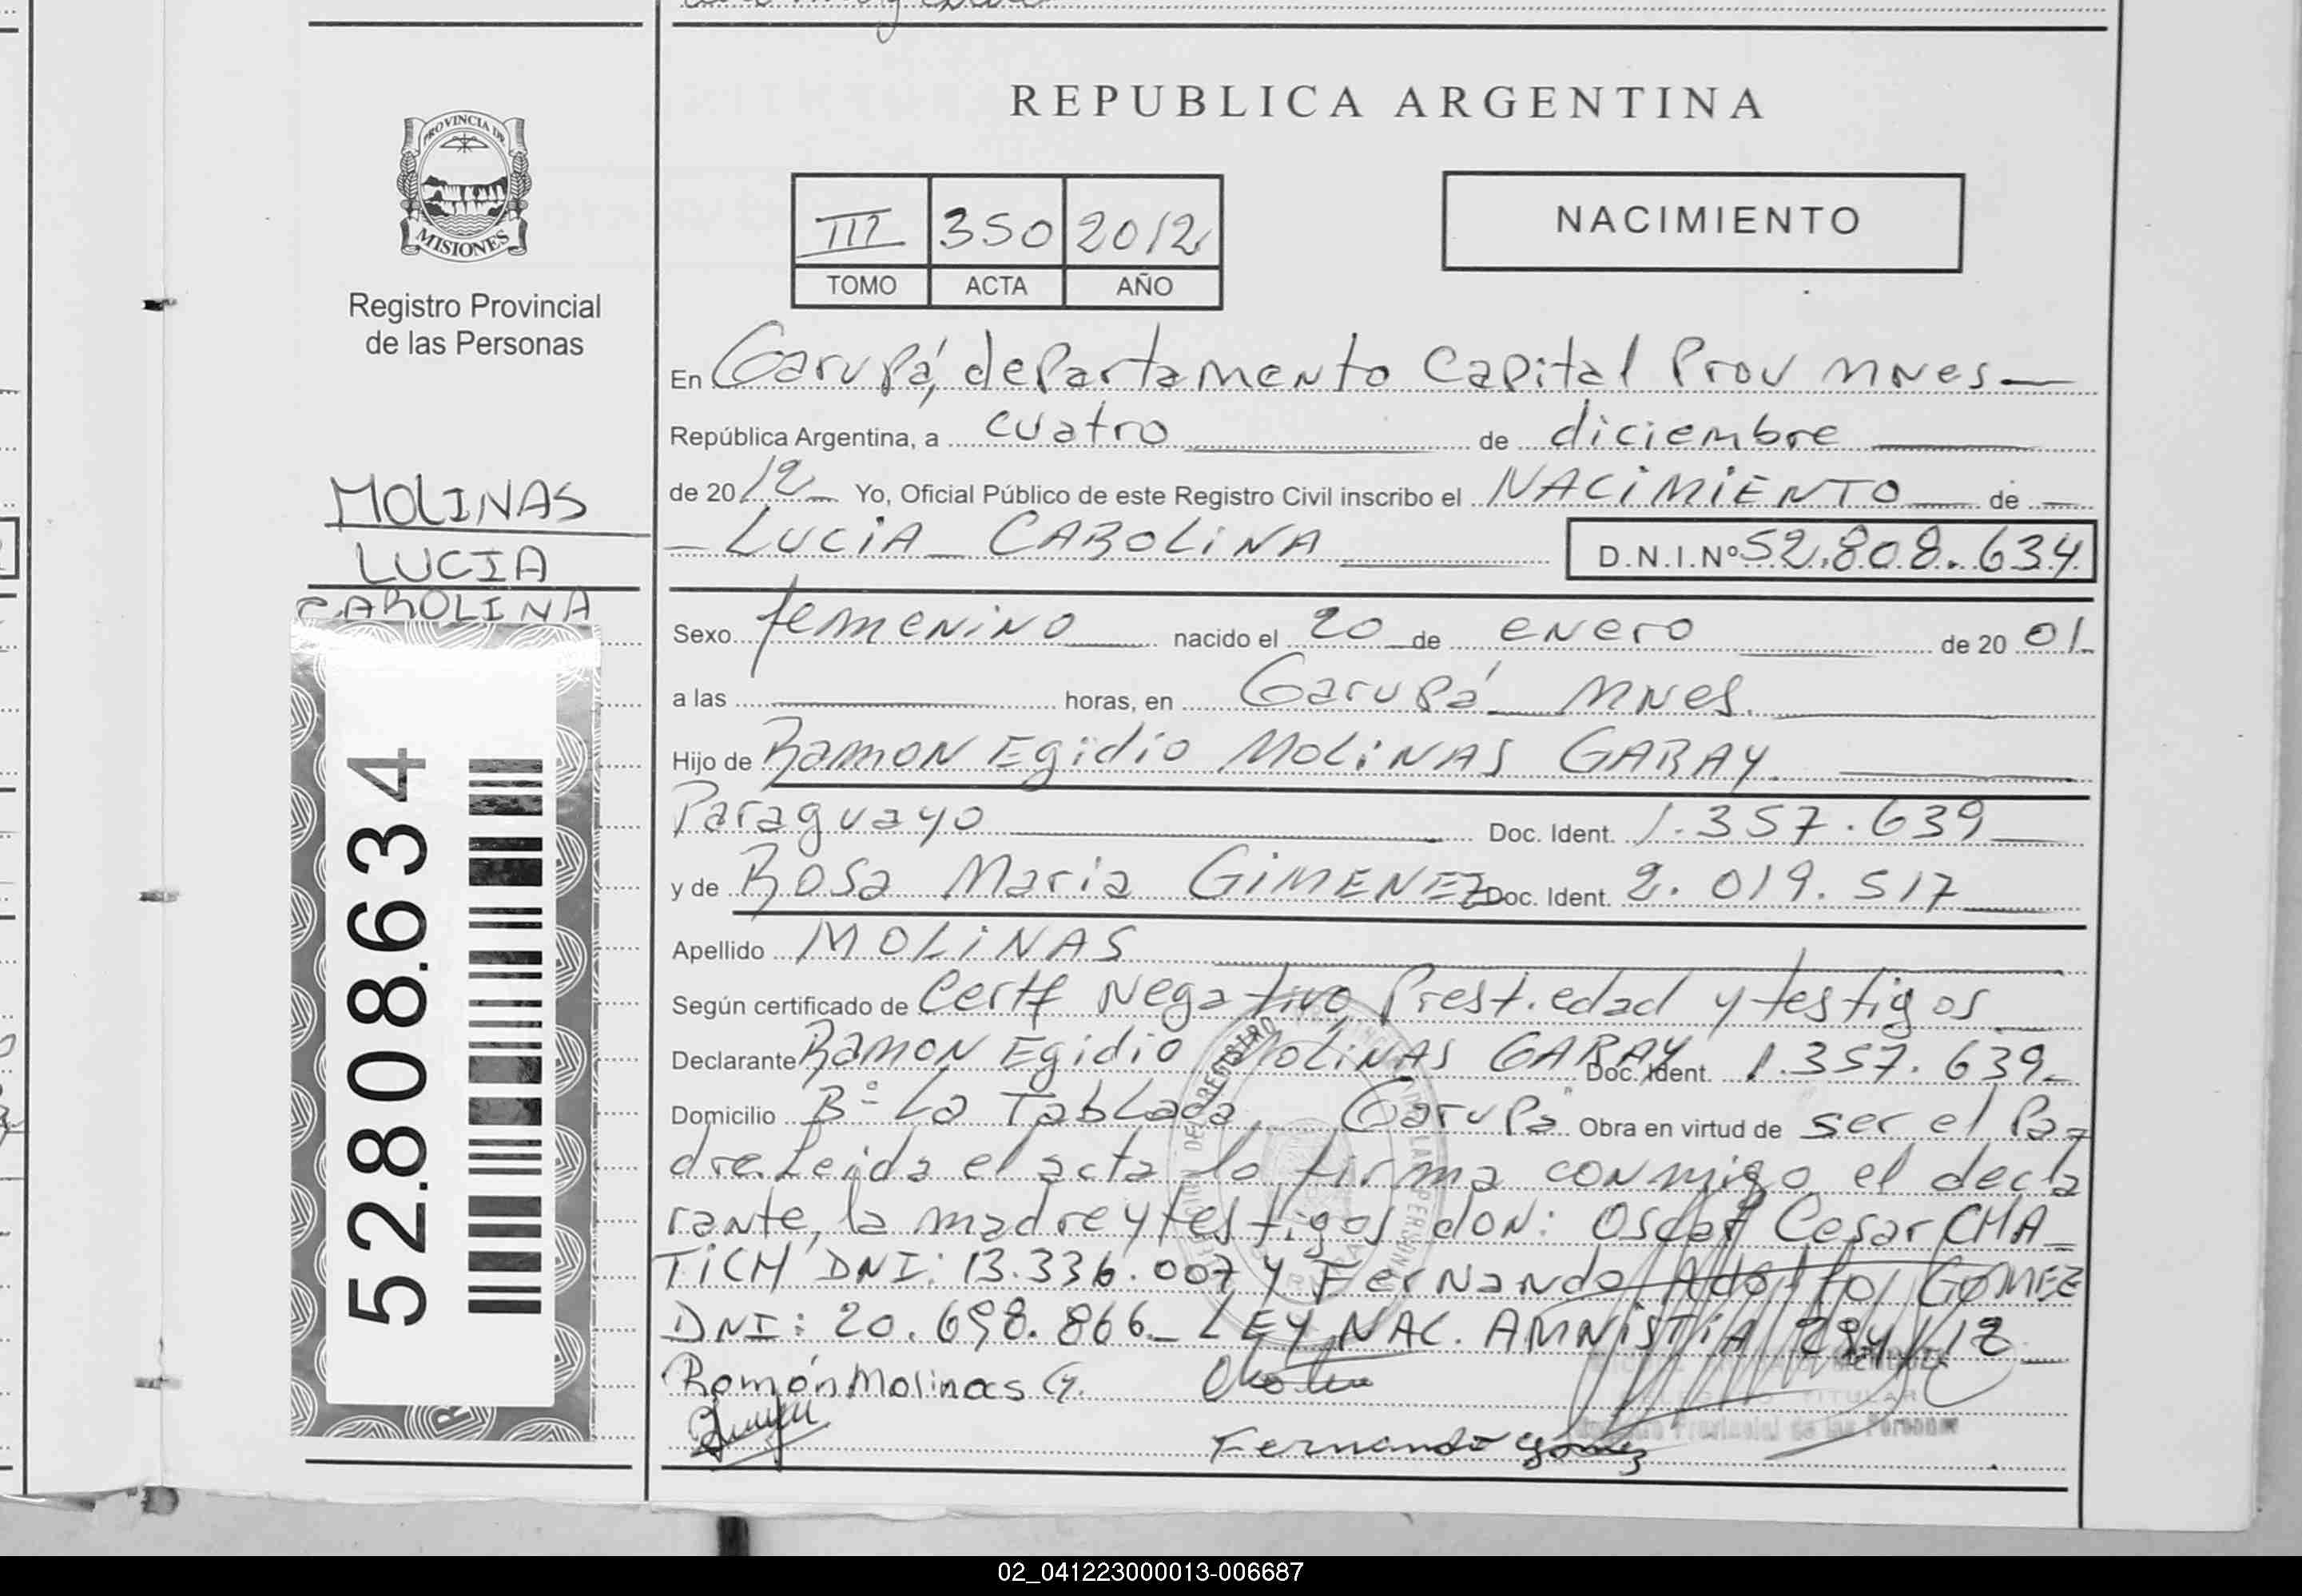 REPUBLICA ARGENTINA
PROVINCIA DE
MISIONES
Registro Provincial
de las Personas
III 350 2012
TOMO ACTA AÑO
NACIMIENTO
MOLINAS
LUCIA
CAROLINA
52.808.634
En Garupá, departamento Capital Prov Mnes
República Argentina, a cuatro de diciembre
de 2012 Yo, Oficial Público de este Registro Civil inscribo el NACIMIENTO de
LUCIA CAROLINA D.N.I.Nº 52.808.634
Sexo femenino nacido el 20 de enero de 2001
a las horas, en Garupá Mnes.
Hijo de Ramon Egidio MOLINAS GARAY.
Paraguayo Doc. Ident. 1.357.639
y de Rosa Maria GIMENEZ Doc. Ident. 2.019.517
Apellido MOLINAS
Según certificado de Certf Negativo, Prest.edad y testigos
Declarante Ramon Egidio MOLINAS GARAY Doc. Ident. 1.357.639
Domicilio Bº La Tablada, Garupa Obra en virtud de ser el Pa-
dre. Leida el acta lo firma conmigo el decla
rante, la madre y testigos don: Oscar Cesar CHA-
TICH DNI: 13.336.007 y Fernando Adolfo GOMEZ
DNI: 20.698.866. LEY NAC. AMNISTIA 294/12
Ramón Molinas G.
TITULAR
Provincial de las Personas
Fernando Gomez
02_041223000013-006687